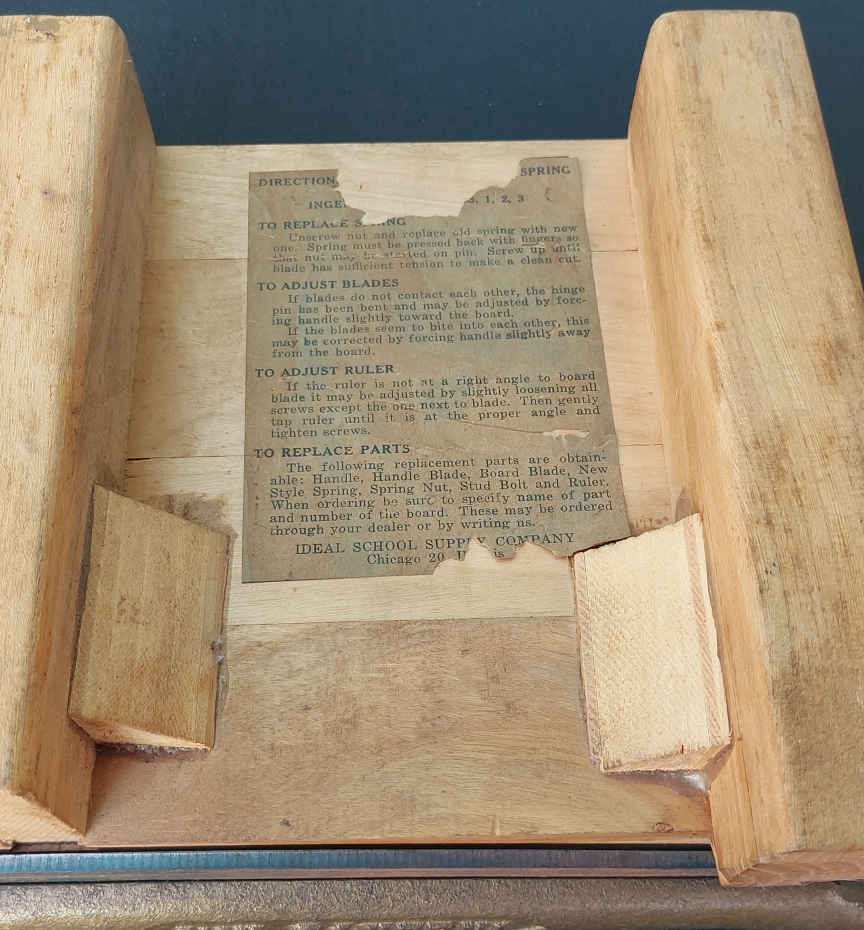 DIRECTION SPRING
INGE 1, 2, 3
TO REPLACE S NG
Unscrew nut and replace old spring with new
one. Spring must be pressed back with fingers so
that nut may be started on pin. Screw up until
blade has sufficient tension to make a clean cut.
TO ADJUST BLADES
If blades do not contact each other, the hinge
pin has been bent and may be adjusted by forc-
ing handle slightly toward the board.
If the blades seem to bite into each other, this
may be corrected by forcing handle slightly away
from the board.
TO ADJUST RULER
If the ruler is not at a right angle to board
blade it may be adjusted by slightly loosening all
screws except the one next to blade. Then gently
tap ruler until it is at the proper angle and
tighten screws.
TO REPLACE PARTS
The following replacement parts are obtain-
able: Handle, Handle Blade, Board Blade, New
Style Spring, Spring Nut, Stud Bolt and Ruler.
When ordering be sure to specify name of part
and number of the board. These may be ordered
through your dealer or by writing us.
IDEAL SCHOOL SUPPLY COMPANY
Chicago 20 I is